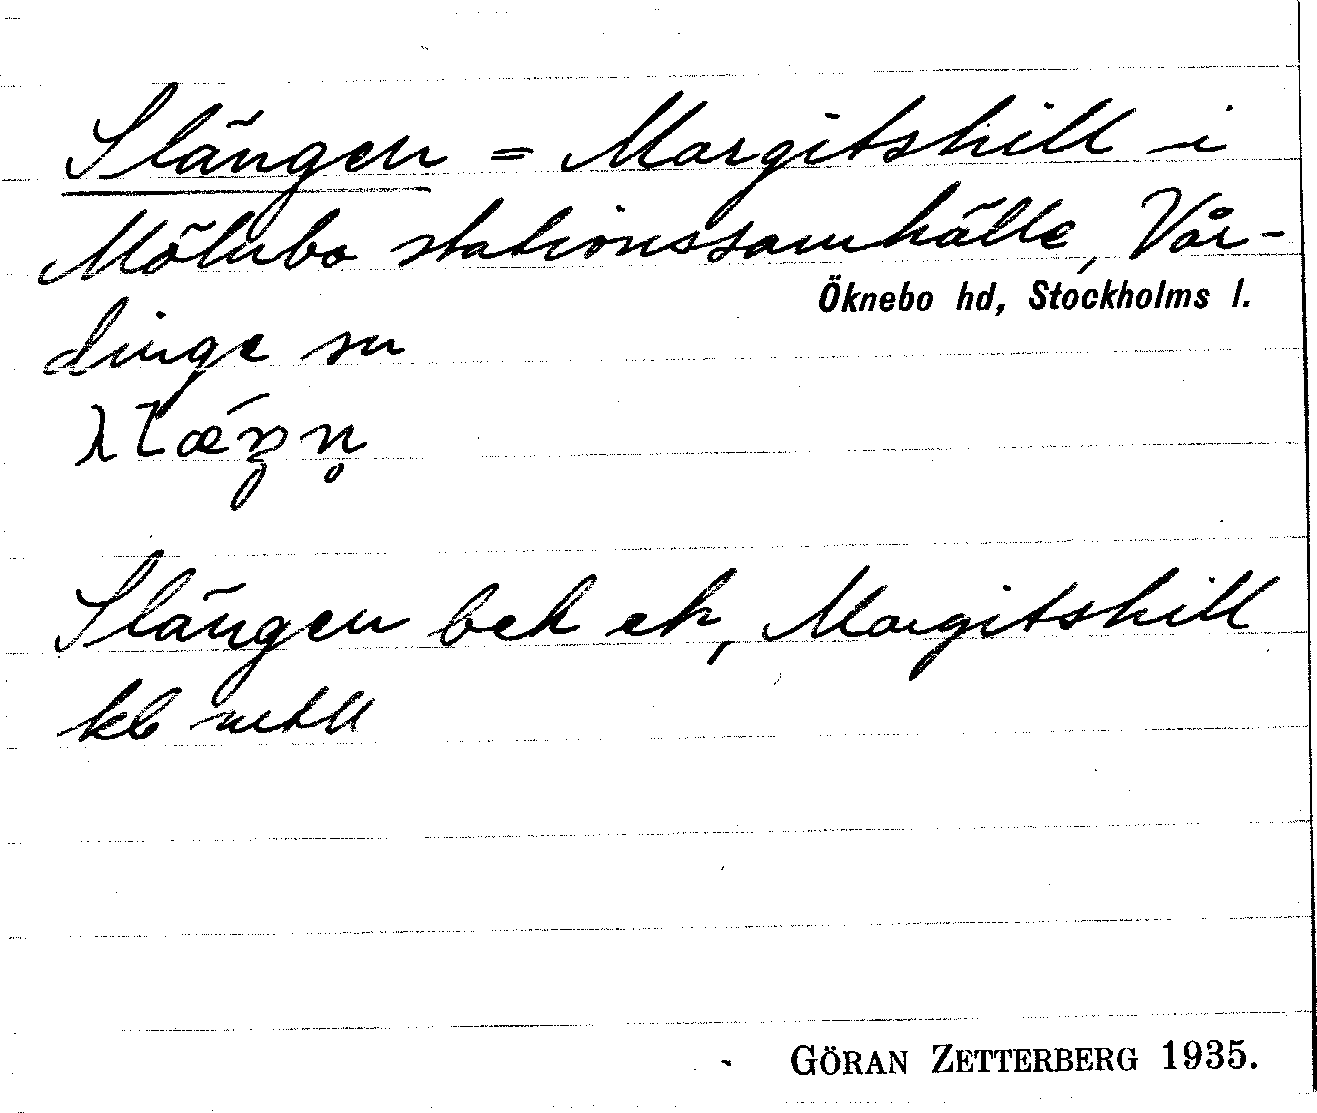 Slängen = Margitshill i
Mölnbo stationssamhälle, Vår-
Öknebo hd, Stockholms l.
dinge sn
Slängen bek ek, Margitshill
kb mtll
GÖRAN ZETTERBERG 1935.